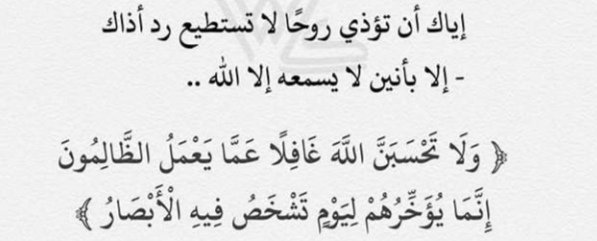 إياك أن تؤذي روحًا لا تستطيع رد أذاك
- إلا بأنين لا يسمعه إلا الله ..
﴿ وَلَا تَحْسَبَنَّ اللَّهَ غَافِلًا عَمَّا يَعْمَلُ الظَّالِمُونَ
إِنَّمَا يُؤَخِّرُهُمْ لِيَوْمٍ تَشْخَصُ فِيهِ الْأَبْصَارُ ﴾